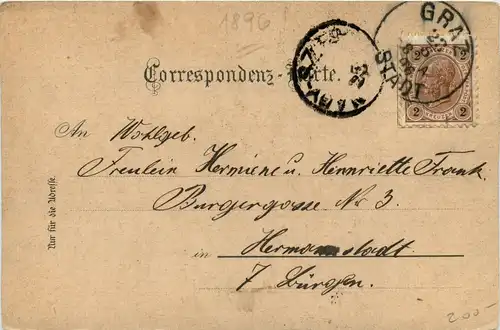 1896
GRAZ
STADT
Correspondenz-Karte.
2 KREUZER 2
An Wohlgeb.
Freulein Hermiene u. Henriette Frank
Burgergosse Nr 3.
in Hermannstadt
7 Bürgen.
Nur für die Adresse.
200-